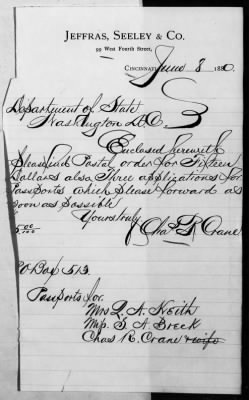 JEFFRAS, SEELEY & CO.
99 West Fourth Street,
CINCINNATI June 8 1880.
Department of State
Washington D.C.
Enclosed herewith
please find Postal order for Fifteen
Dollars also Three applications for
Passports which please forward as
soon as possible
Yours truly
Chas R Crane
P.O Box 513.
Passports for
Mrs L. A. Keith
Miss S. A Breck
Chas R. Crane & wife